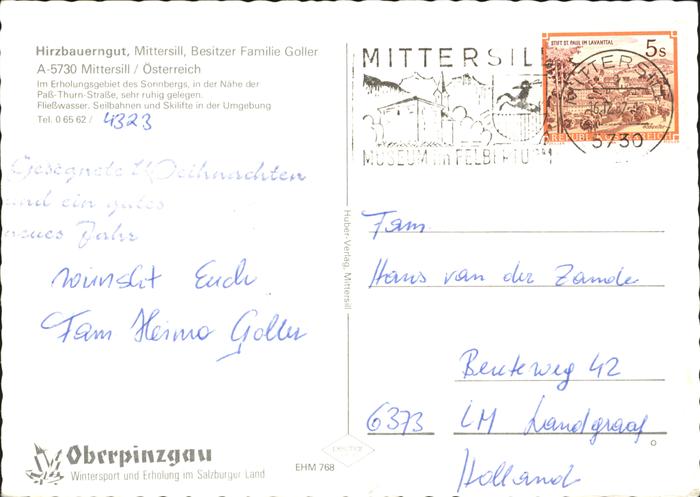 Hirzbauerngut, Mittersill, Besitzer Familie Goller
A-5730 Mittersill / Österreich
Im Erholungsgebiet des Sonnbergs, in der Nähe der
Paß-Thurn-Straße, sehr ruhig gelegen.
Fließwasser. Seilbahnen und Skilifte in der Umgebung
Tel. 0 65 62 / 4323
Gesegnete Weihnachten
und ein gutes
neues Jahr
wünscht Euch
Fam Heimo Goller
Oberpinzgau
Wintersport und Erholung im Salzburger Land
EHM 768
Huber-Verlag, Mittersill
MITTERSILL
MUSEUM im FELBERTURM
STIFT ST. PAUL IM LAVANTTAL
5s
REPUBLIK ÖSTERREICH
MITTERSILL
5730
Fam.
Hans van der Zande
Beuteweg 42
6373 LM Landgraaf
Holland